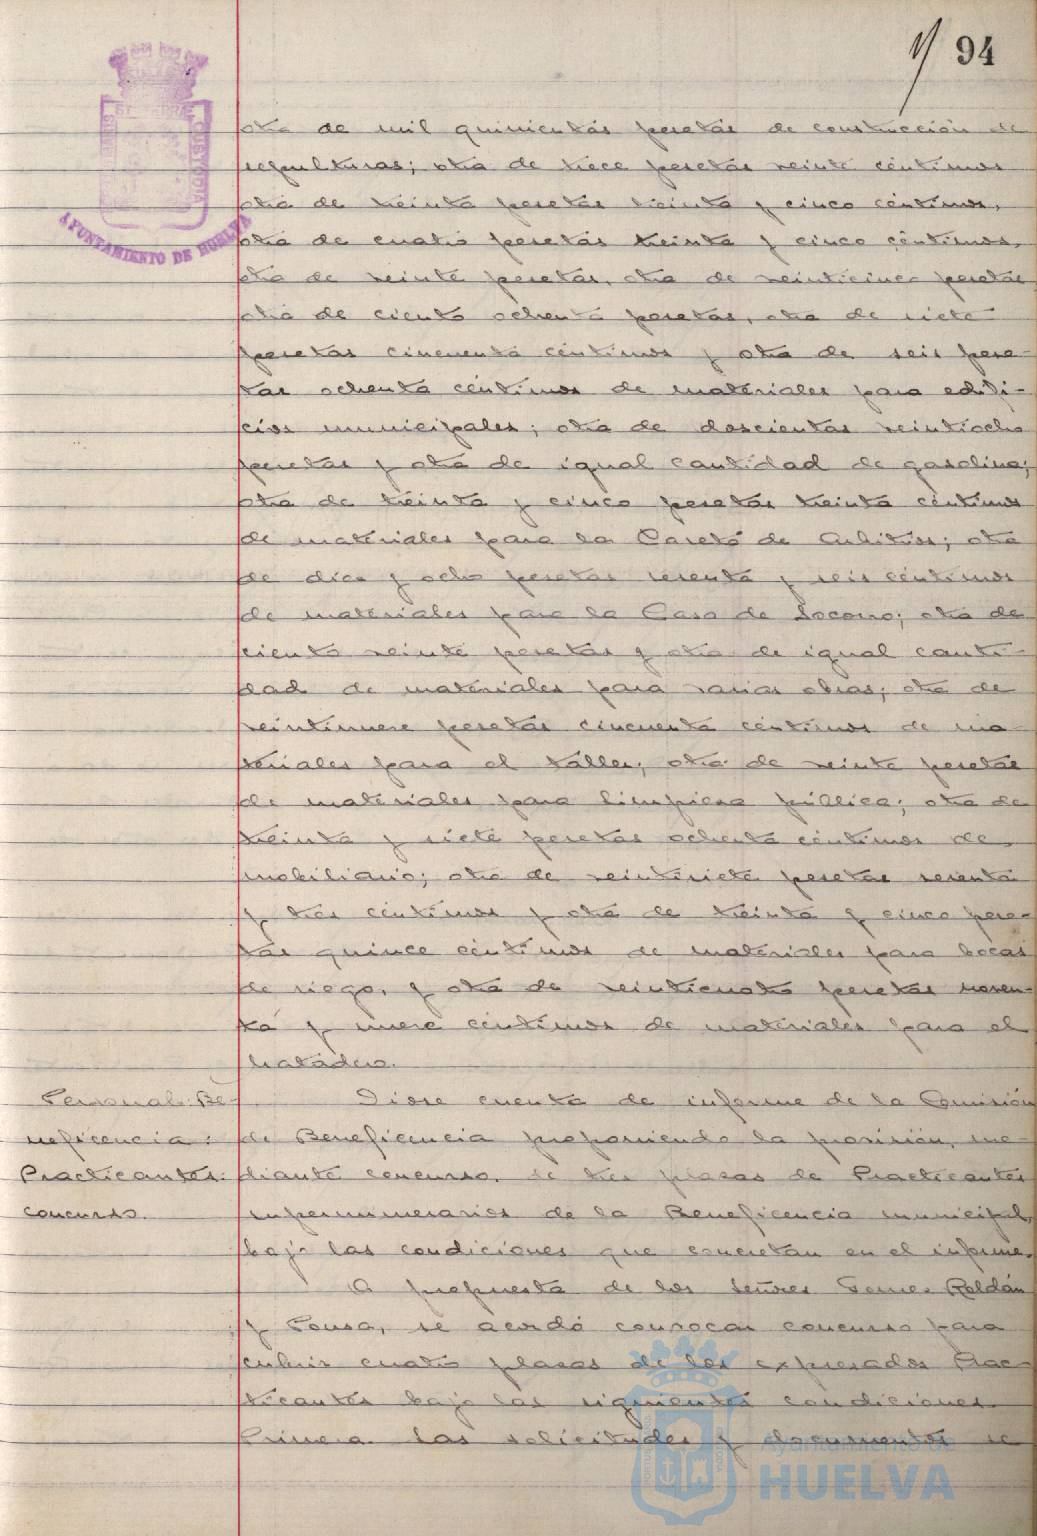 94
otra de mil quinientas pesetas de construcción de
sepulturas; otra de trece pesetas veinte céntimos
otra de treinta pesetas treinta y cinco céntimos,
otra de cuatro pesetas treinta y cinco céntimos,
otra de veinte pesetas, otra de veinticinco pesetas
otra de ciento ochenta pesetas, otra de siete
pesetas cincuenta céntimos y otra de seis pese-
tas ochenta céntimos de materiales para edifi-
cios municipales; otra de doscientas veintiocho
pesetas y otra de igual cantidad de gasolina;
otra de treinta y cinco pesetas treinta céntimos
de materiales para la Caseta de Arbitrios; otra
de diez y ocho pesetas sesenta y seis céntimos
de materiales para la Casa de Socorro; otra de
ciento veinte pesetas y otra de igual canti-
dad de materiales para varias obras; otra de
veintinueve pesetas cincuenta céntimos de ma-
teriales para el taller; otra de veinte pesetas
de materiales para limpieza pública; otra de
treinta y siete pesetas ochenta céntimos de
mobiliario; otra de veintisiete pesetas sesenta
y tres céntimos y otra de treinta y cinco pese-
tas quince céntimos de materiales para bocas
de riego, y otra de veinticuatro pesetas noven-
ta y nueve céntimos de materiales para el
Matadero.
Personal: Be-
neficencia:
Practicantes:
concurso.
Diose cuenta de informe de la Comisión
de Beneficencia proponiendo la provisión, me-
diante concurso, de tres plazas de Practicantes
supernumerarios de la Beneficencia municipal,
bajo las condiciones que concretan en el informe.
A propuesta de los Señores Roldán
y Sousa, se acordó convocar concurso para
cubrir cuatro plazas de los expresados Prac-
ticantes bajo las siguientes condiciones.
Primera. Las solicitudes y documentos se
AYUNTAMIENTO DE HUELVA
Ayuntamiento de
HUELVA